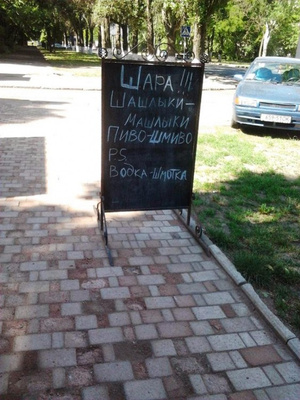 Шара!!!
Шашлыки-
машлыки
Пиво-Шмиво
P.S.
Водка-Шмотка